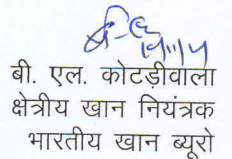 बी. एल. कोटड़ीवाला
क्षेत्रीय खान नियंत्रक
भारतीय खान ब्यूरो